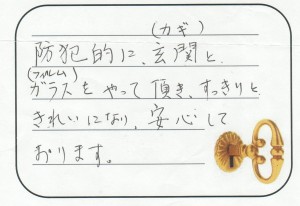 (カギ)
防犯的に、玄関と、
(フィルム)
ガラスをやって頂き、すっきりと
きれいになり、安心して
おります。